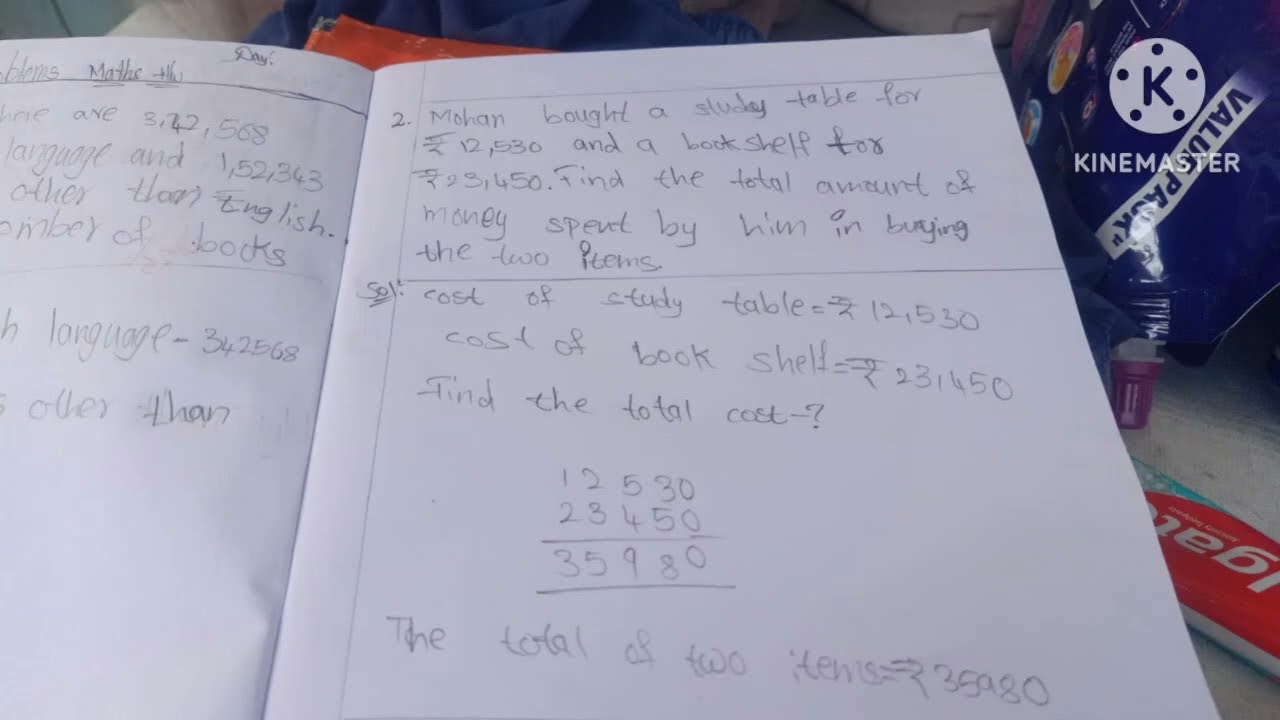 Day:
oblems Maths
here are 3,42,568
language and 1,52,343
other than English.
omber of books
h language - 342568
s other than
2. Mohan bought a study table for
₹12,530 and a book shelf for
₹23,450. Find the total amount of
money spent by him in buying
the two items.
Sol: cost of study table=₹12,530
cost of book shelf=₹23,450
Find the total cost-?
12530
23450
35980
The total of two items=₹35980
KINEMASTER
VALUE PACK"
lgate